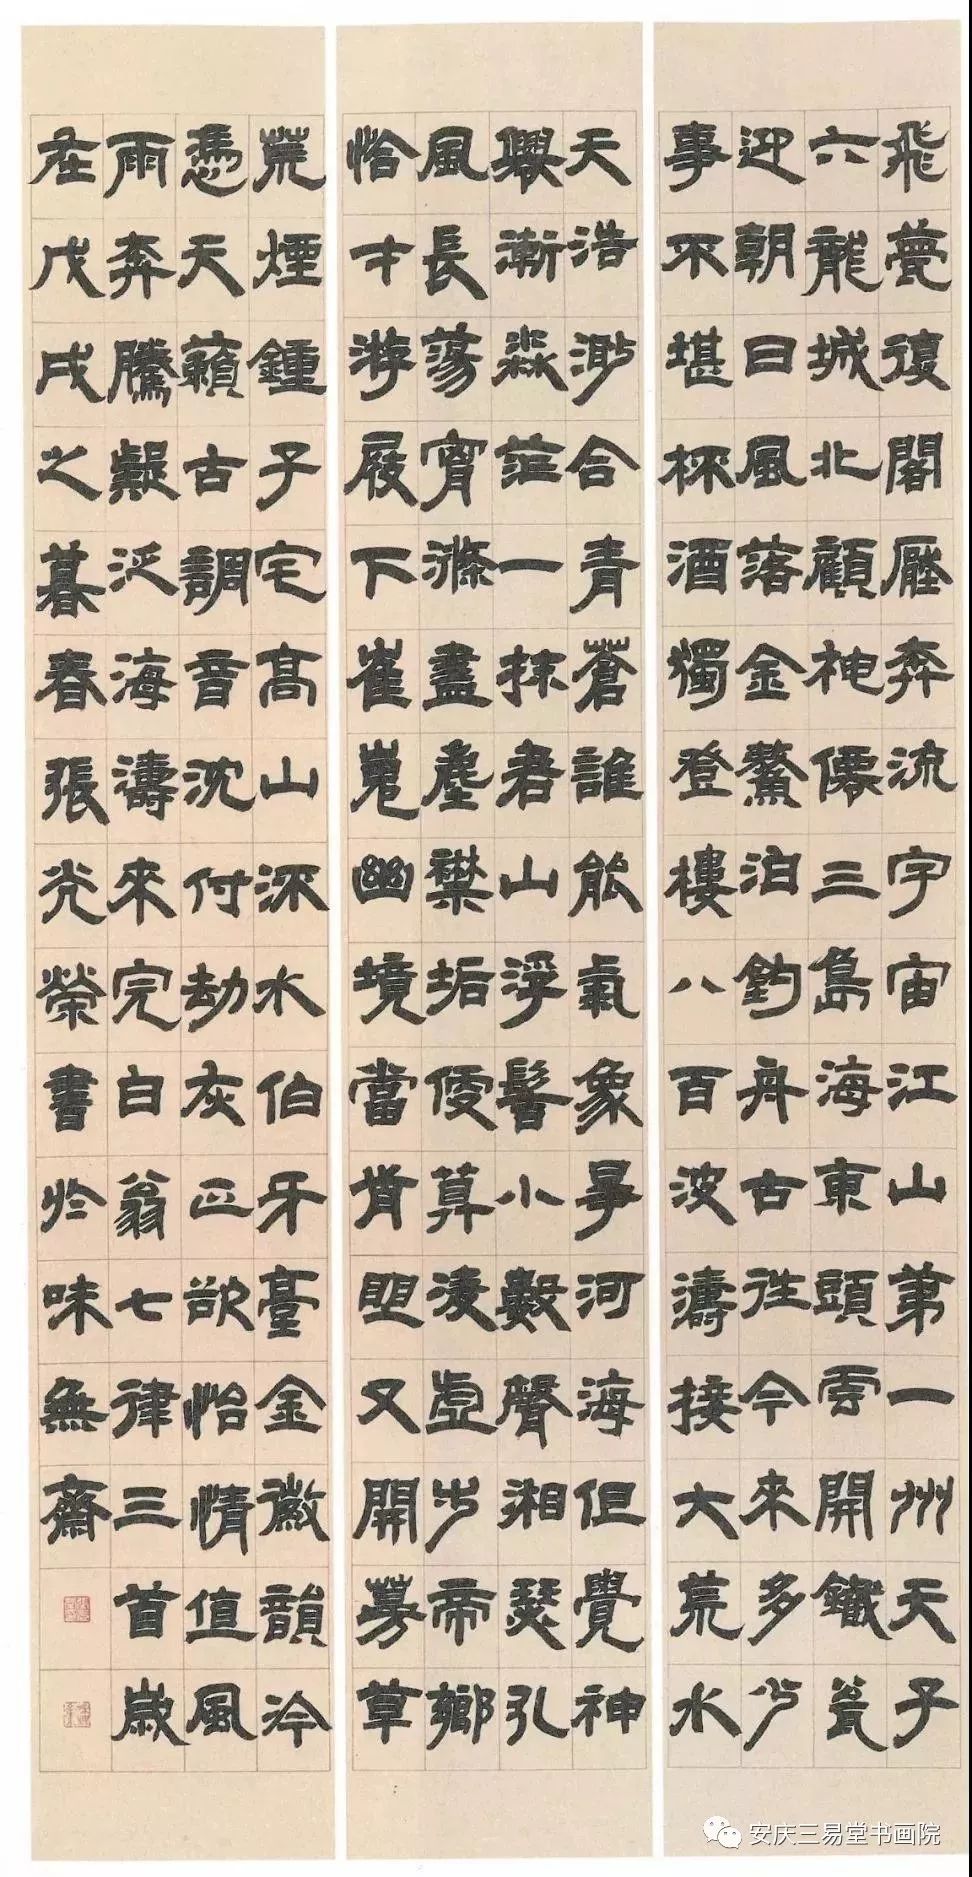 飛甍復閣壓奔流宇宙江山第一州天子
六龍城北顧神僊三島海東頭雲開鐵瓮
迎朝日風落金鰲泊釣舟古往今來多少
事不堪杯酒獨登樓八百波濤接大荒水
天浩渺合青蒼誰能氣象爭河海但覺神
興漸淼茫一抹君山浮髻小數聲湘瑟孔
風長蕩胷滌盡塵襟垢便算凌虛步帝鄉
恰才游屐下崔嵬幽境當前眼又開蔓草
荒煙鍾子宅高山深水伯牙臺金徽韻冷
憑天籟古調音沈付劫灰正欲怡情值風
雨奔騰疑泛海濤來完白翁七律三首歲
在戊戌之暮春張光榮書於味無齋
安庆三易堂书画院